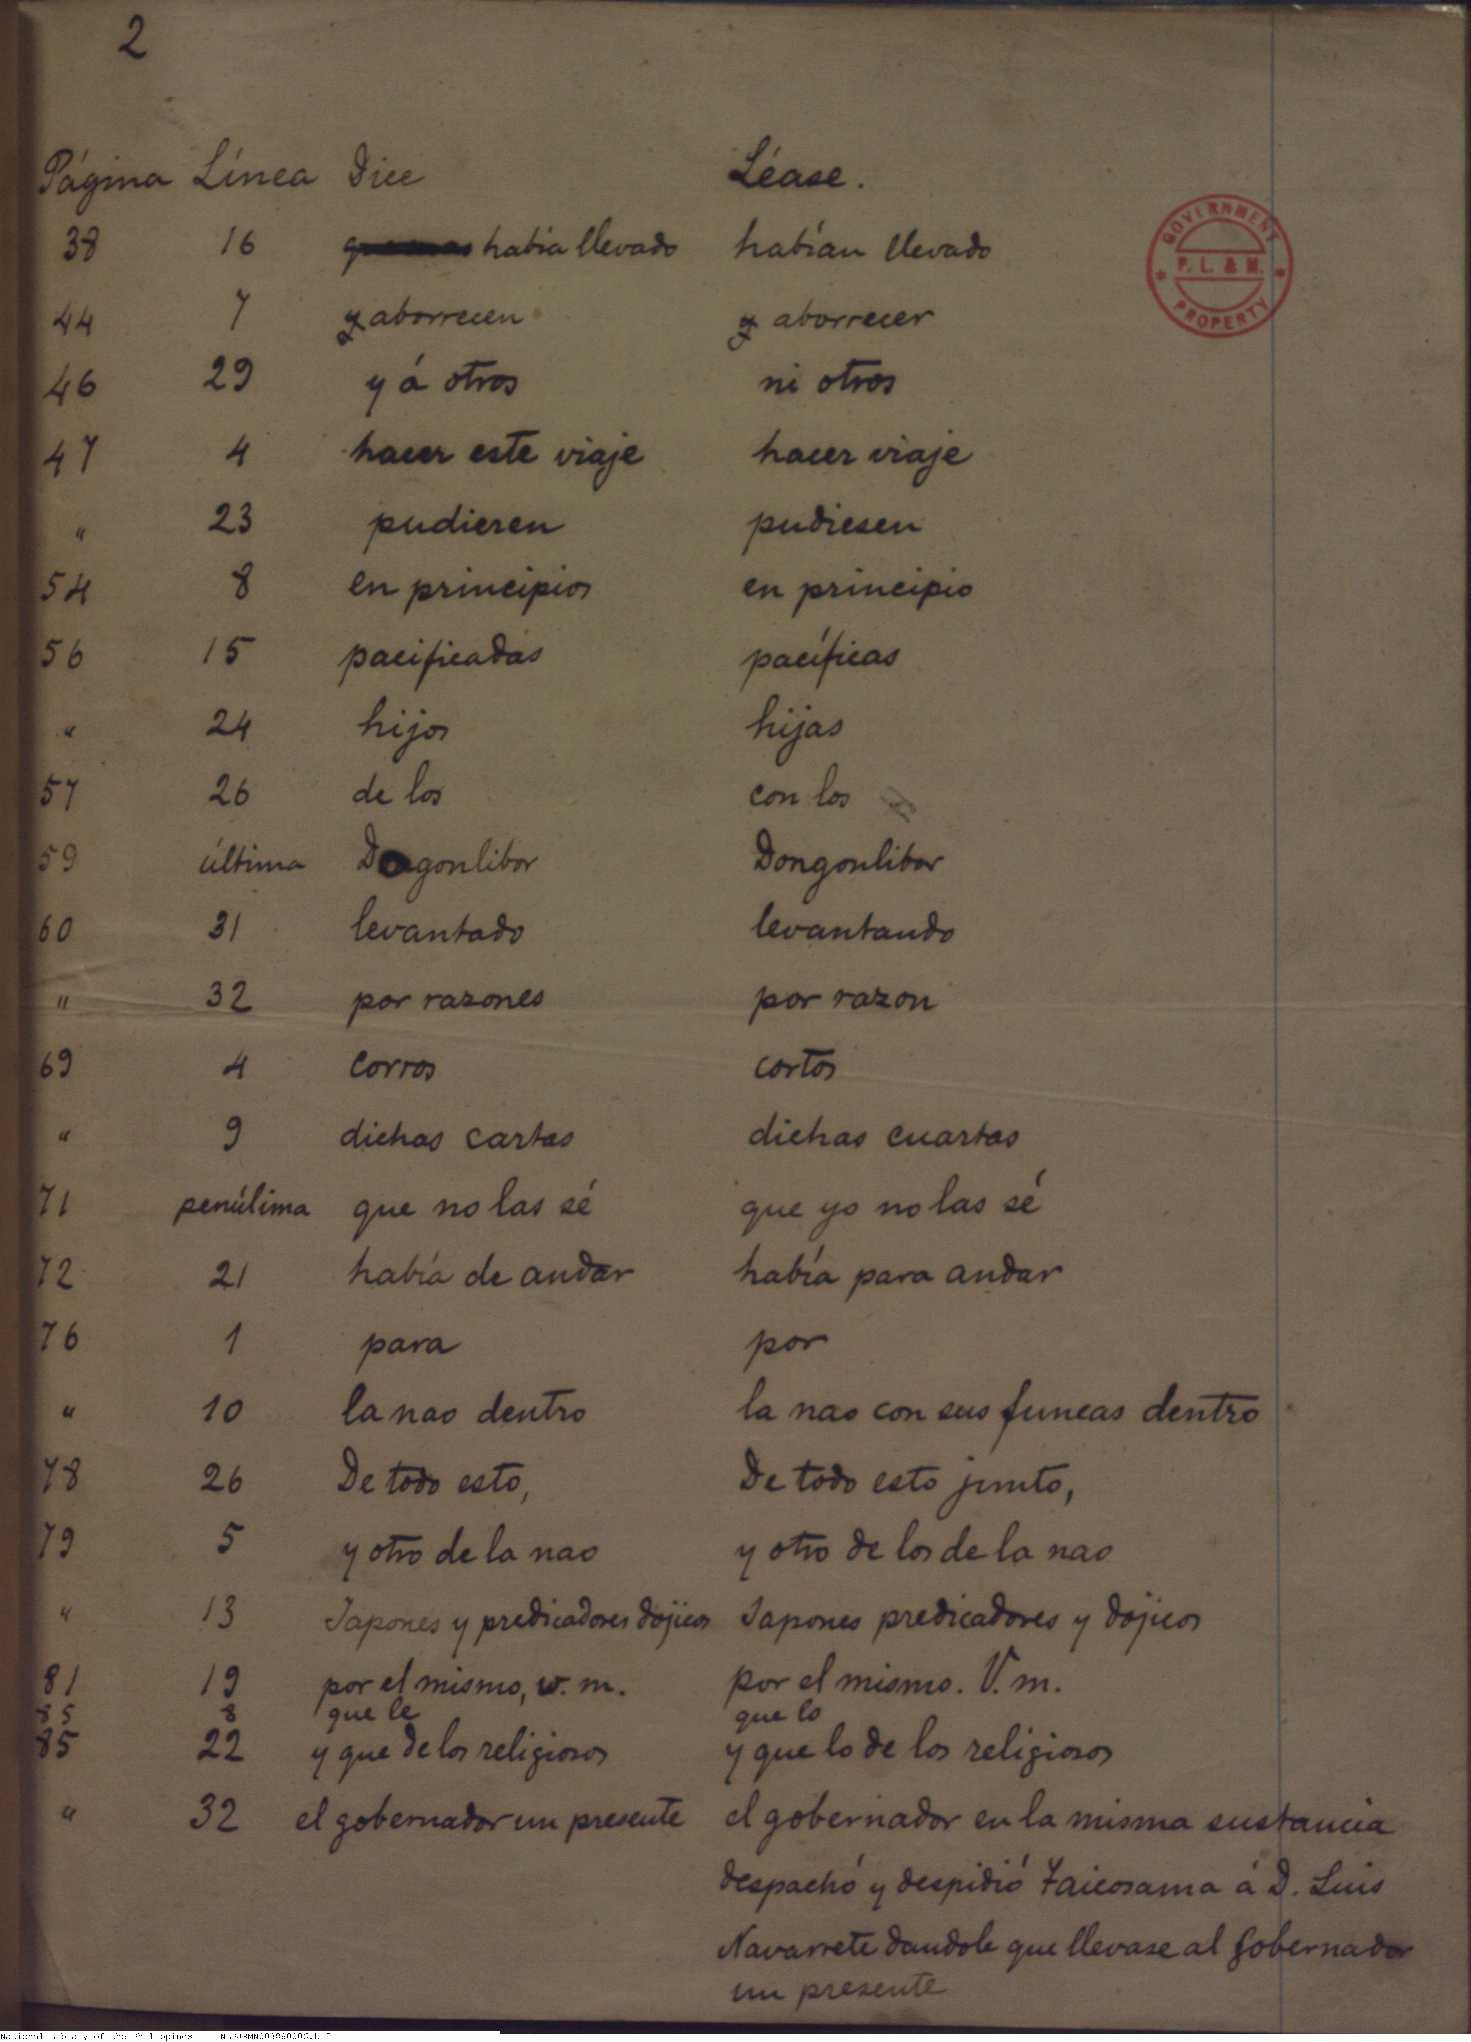 2
Página Línea Dice Léase.
38 16 había llevado habían llevado
44 7 y aborrecen y aborrecer
46 29 y á otros ni otros
47 4 hacer este viaje hacer viaje
" 23 pudieren pudiesen
54 8 en principios en principio
56 15 pacificadas pacíficas
" 24 hijos hijas
57 26 de los con los
59 última Dogonlibor Dongonlibor
60 31 levantado levantando
" 32 por razones por razon
69 4 corros cortos
" 9 dichas cartas dichas cuartas
71 penúlima que no las sé que yo no las sé
72 21 había de andar había para andar
76 1 para por
" 10 la nao dentro la nao con sus funeas dentro
78 26 De todo esto, De todo esto junto,
79 5 y otro de la nao y otro de los de la nao
" 13 Japones y predicadores dojicos Japones predicadores y dojicos
81 19 por el mismo, v. m. por el mismo. V. m.
85 8 que le que lo
85 22 y que de los religiosos y que lo de los religiosos
" 32 el gobernador un presente el gobernador en la misma sustancia
despachó y despidió Taicosama á D. Luis
Navarrete dandole que llevase al gobernador
un presente
GOVERNMENT
P. L. & M.
PROPERTY
National Library of the Philippines